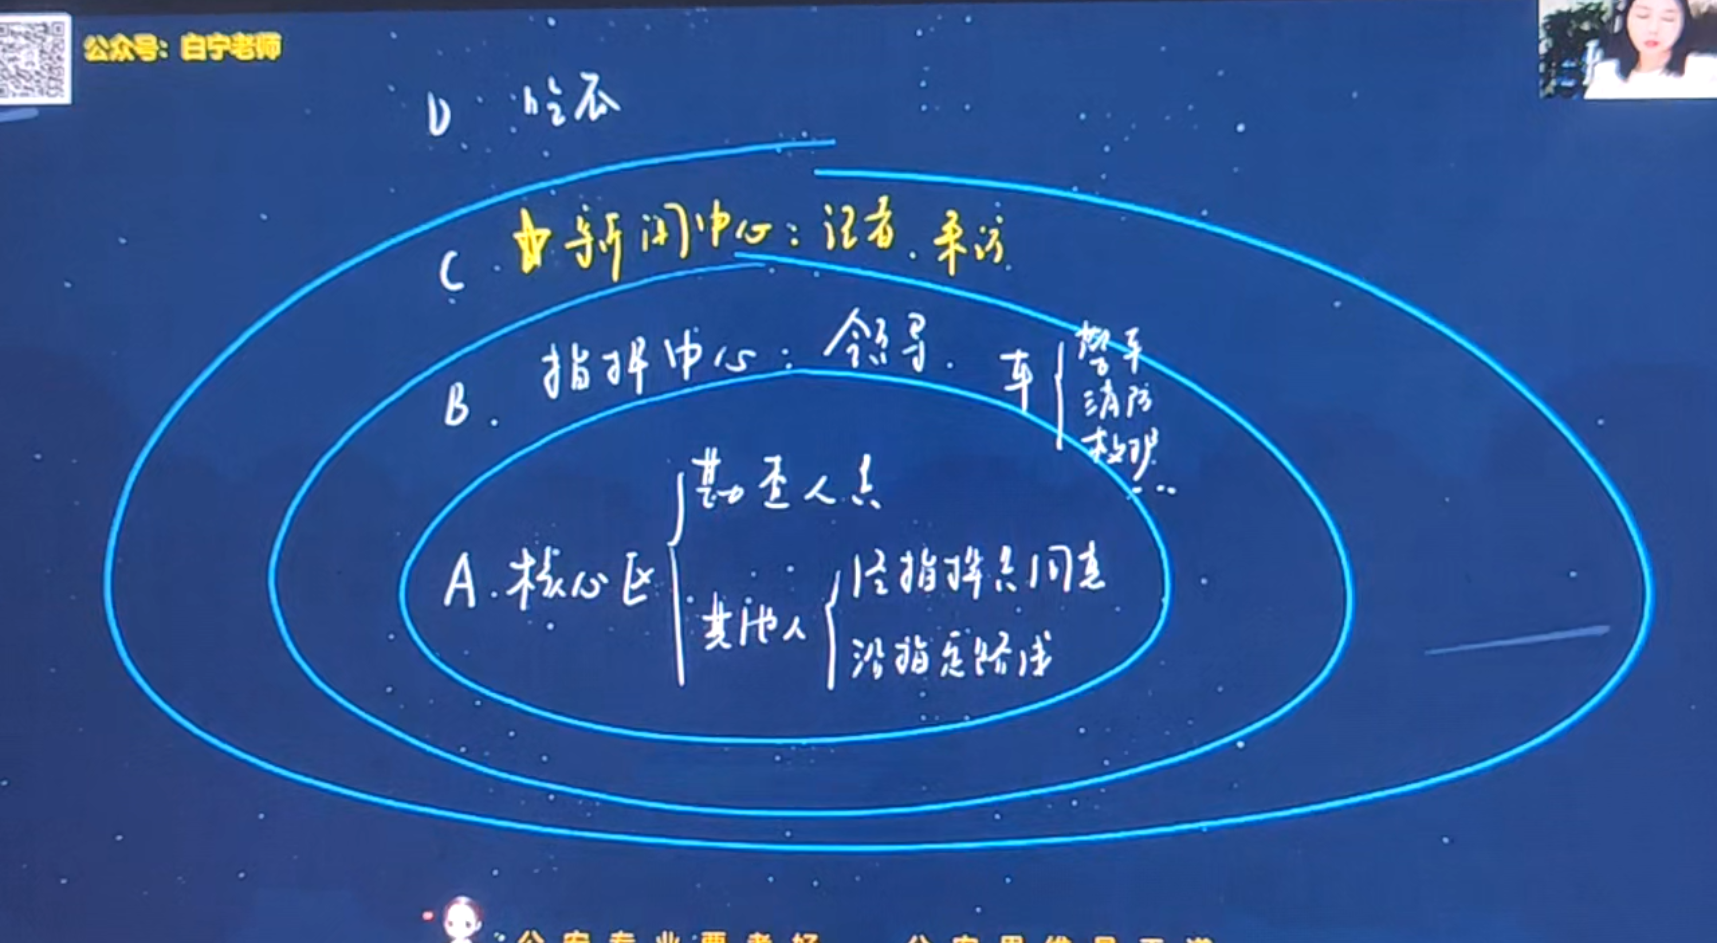 公众号：白宁老师
D. 吃瓜
C. ★新闻中心：记者.采访.
B. 指挥中心：领导. 车
警车
消防
救护
...
A. 核心区
勘查人员
其他人
经指挥员同意
沿指定路线
公安专业要考好